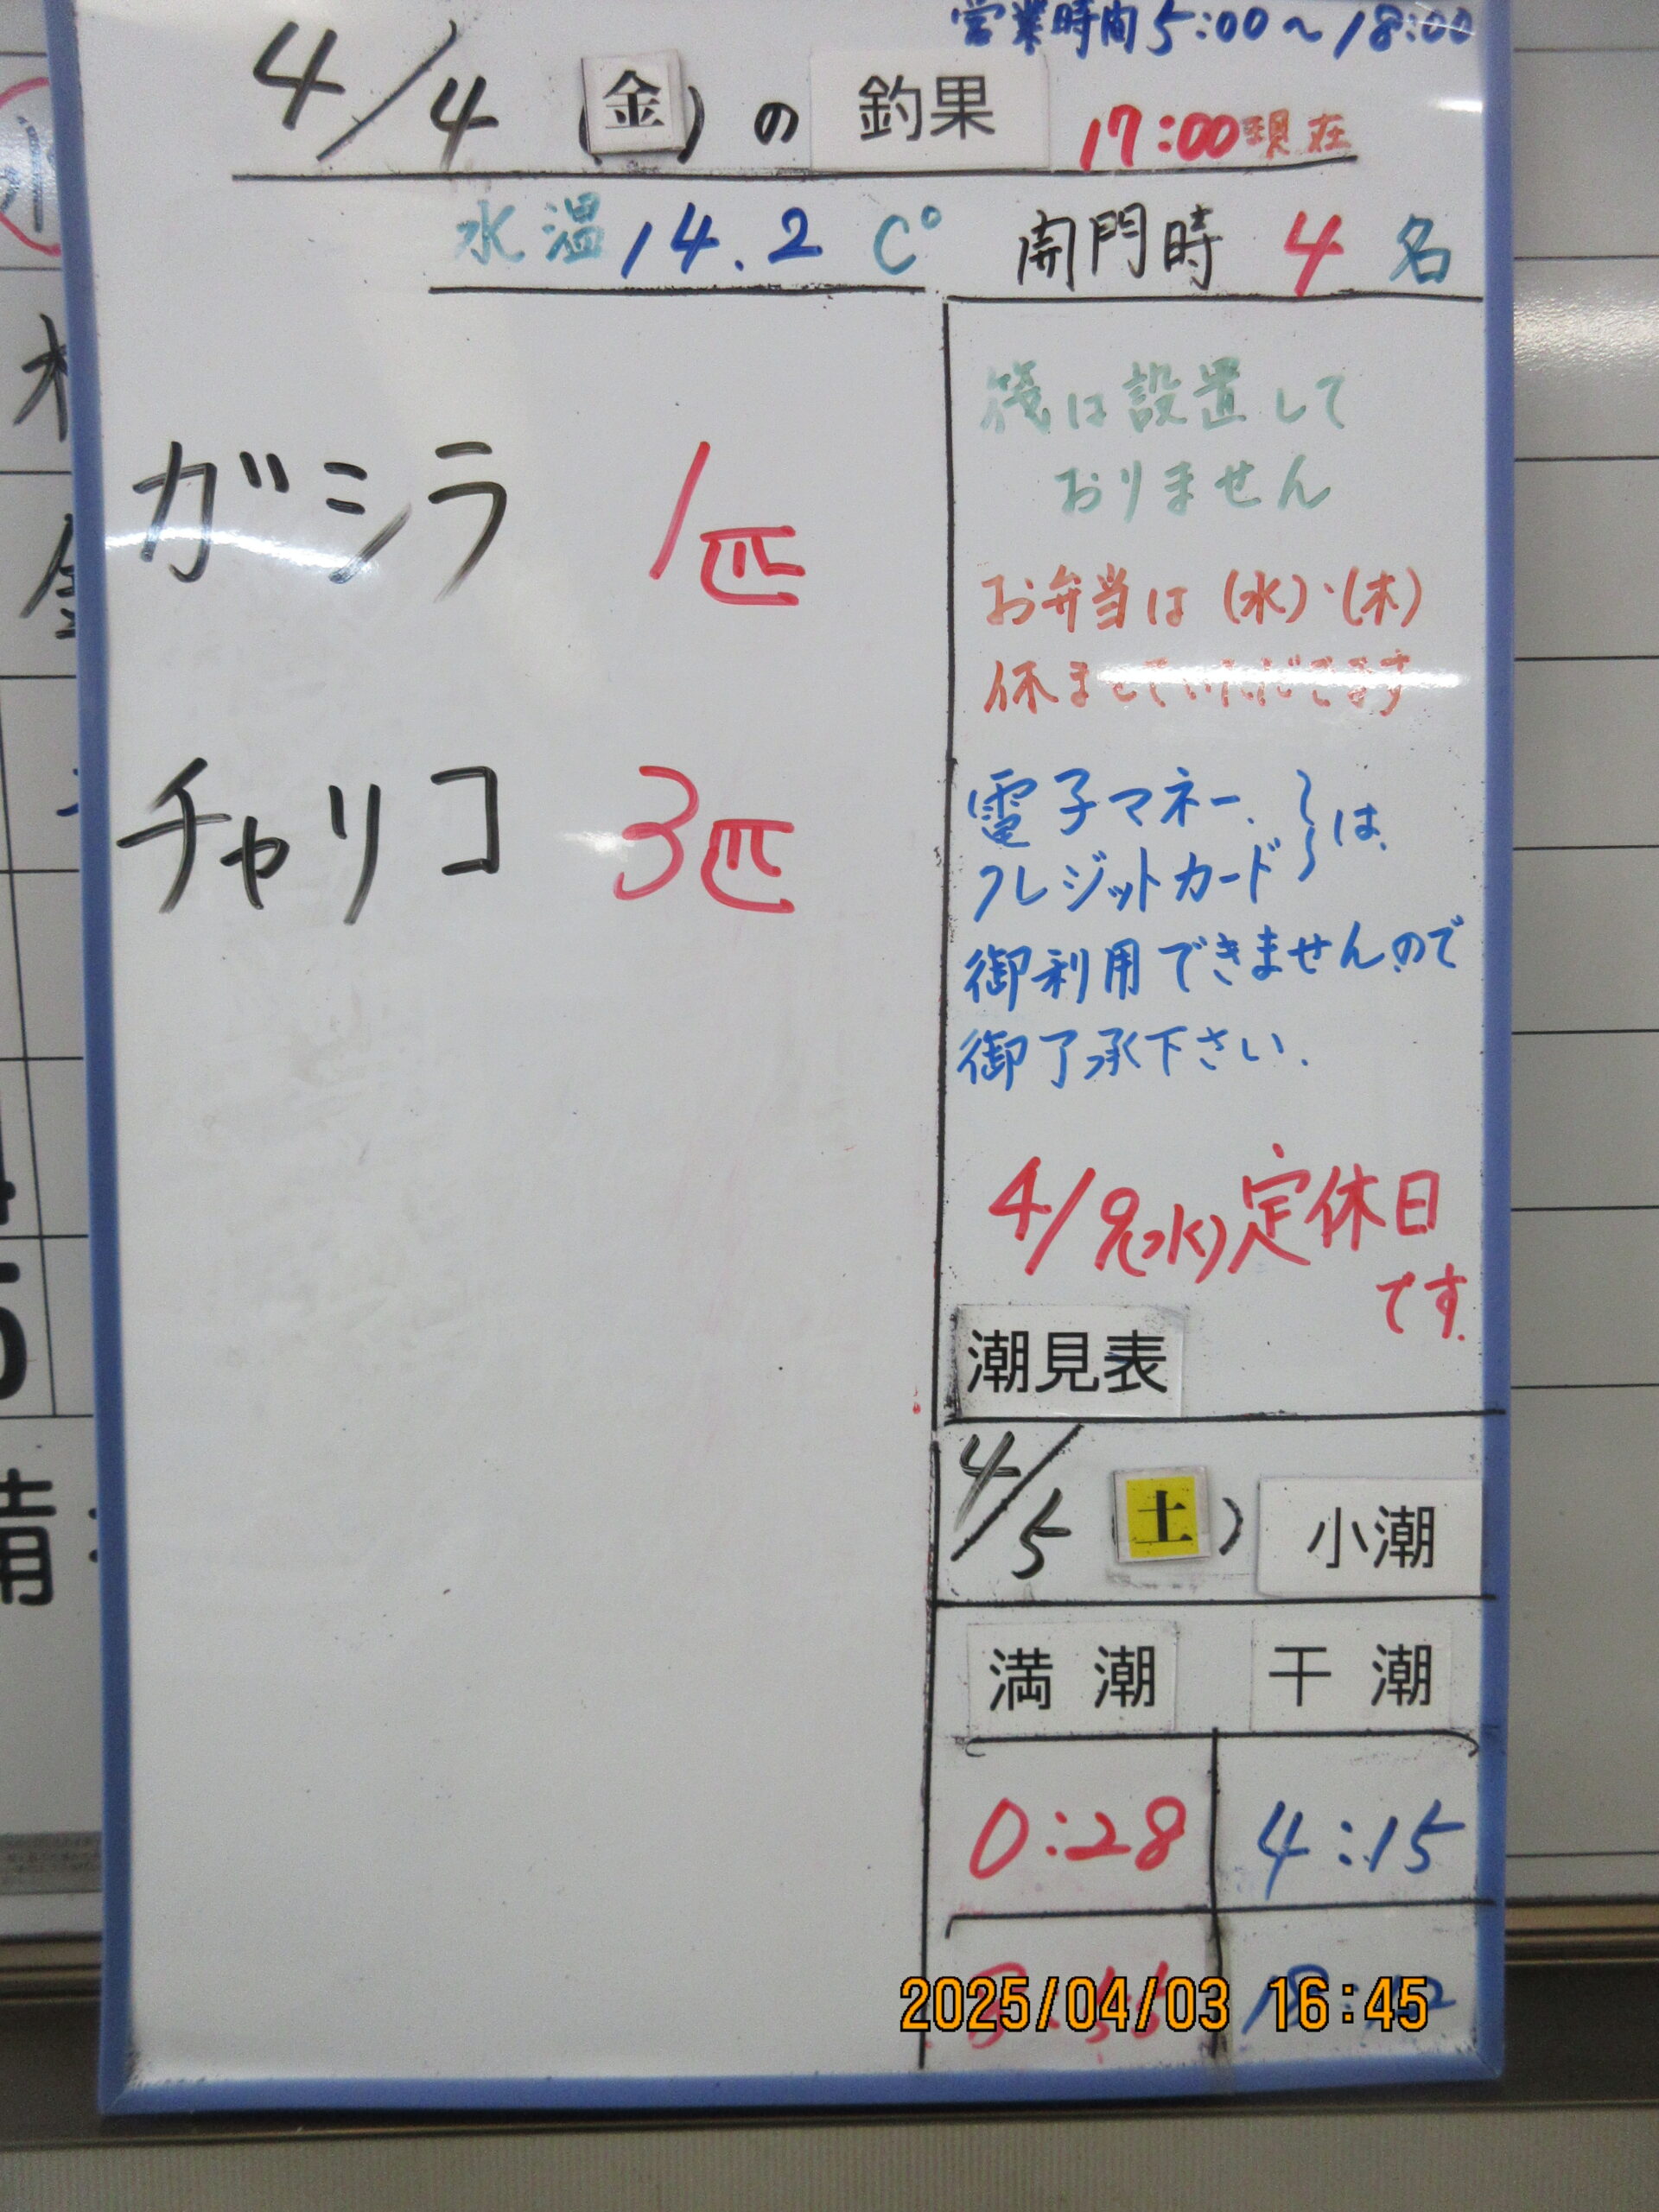 営業時間5:00～18:00
4/4(金)の釣果 17:00現在
水温14.2C° 開門時4名
ガシラ 1匹
チャリコ 3匹
筏は設置して
おりません
お弁当は(水)・(木)
休ませていただきます
電子マネー、
クレジットカード は、
御利用できませんので
御了承下さい.
4/9(水)定休日
です.
潮見表
4/5 土) 小潮
満潮 干潮
0:28 4:15
2025/04/03 16:45